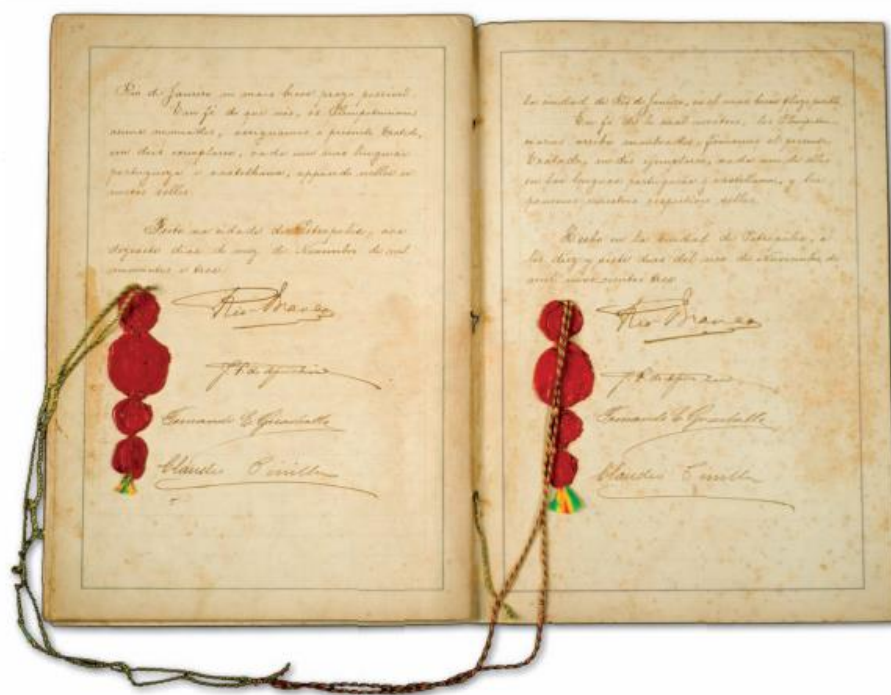 Rio de Janeiro no mais breve prazo possivel.
Em fé do que nós, os Plenipotenciarios
acima nomeados, assignamos o presente Tratado,
em dois exemplares, cada um nas linguas
portugueza e castelhana, appondo nelles os
nossos sellos.
Feito na cidade de Petropolis, aos
dezasete dias do mez de Novembro de mil
novecentos e tres.
Rio-Branco
J. F. de Assis Brasil
Fernando E. Guachalla
Claudio Pinilla
la ciudad de Rio de Janeiro, en el mas breve plazo posible.
En fé de lo cual nosotros, los Plenipoten-
ciarios arriba nombrados, firmamos el presente
Tratado, en dos ejemplares, cada uno de ellos
en las lenguas portuguesa y castellana, y les
ponemos nuestros respectivos sellos.
Hecho en la ciudad de Petropolis, á
los diez y siete dias del mes de Noviembre de
mil novecientos tres.
Rio-Branco
J. F. de Assis Brasil
Fernando E. Guachalla
Claudio Pinilla